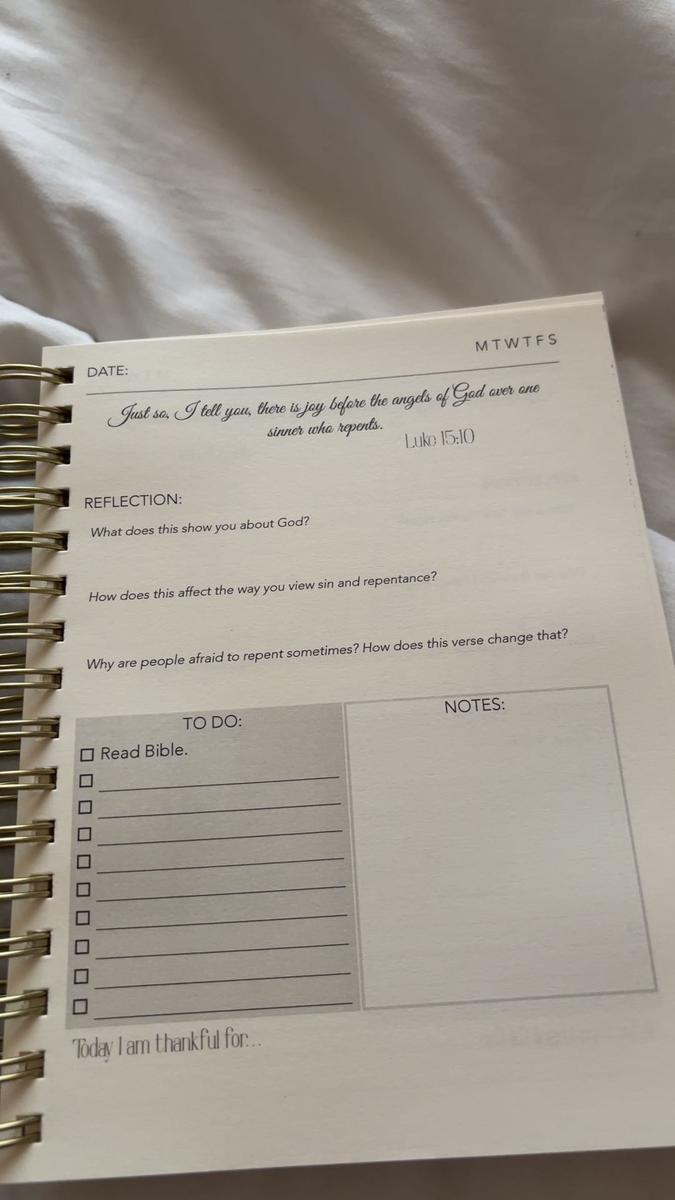 MTWTFS
DATE:
Just so, I tell you, there is joy before the angels of God over one
sinner who repents.
Luke 15:10
REFLECTION:
What does this show you about God?
How does this affect the way you view sin and repentance?
Why are people afraid to repent sometimes? How does this verse change that?
TO DO:
Read Bible.
NOTES:
Today I am thankful for...